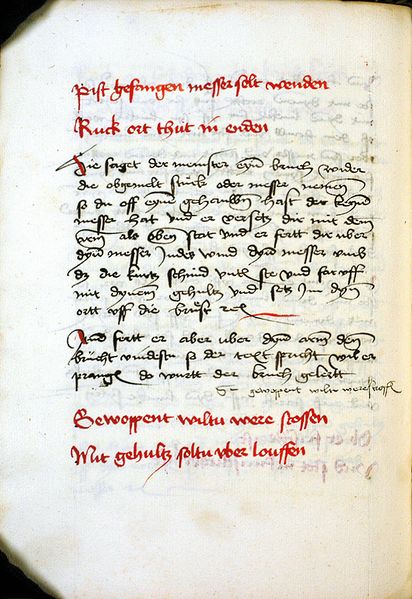 Pist gefangen messer solt wenden
Ruck ort thut in enden
Hie saget der meinster eyn bruch wider
die obgemelt stuck oder messer nemen
so du off eyne gehawen hast der eyn
messer hat und er versetz dir mit dem
arm als oben stat und er fertt dir uber
dyn messer Indes wind dyn messer umb
dz die kurtz schnid unden ste und far uff
mit dynem gehultz und setz Im dyn
ortt uff die brust
Und fertt er aber uber dyn arm den
bricht so der text spricht wil er
do wurtt der bruch gelertt
gewoppent wiltu were stossen
Gewoppent wiltu were stossen
Mit gehultz soltu uber louffen